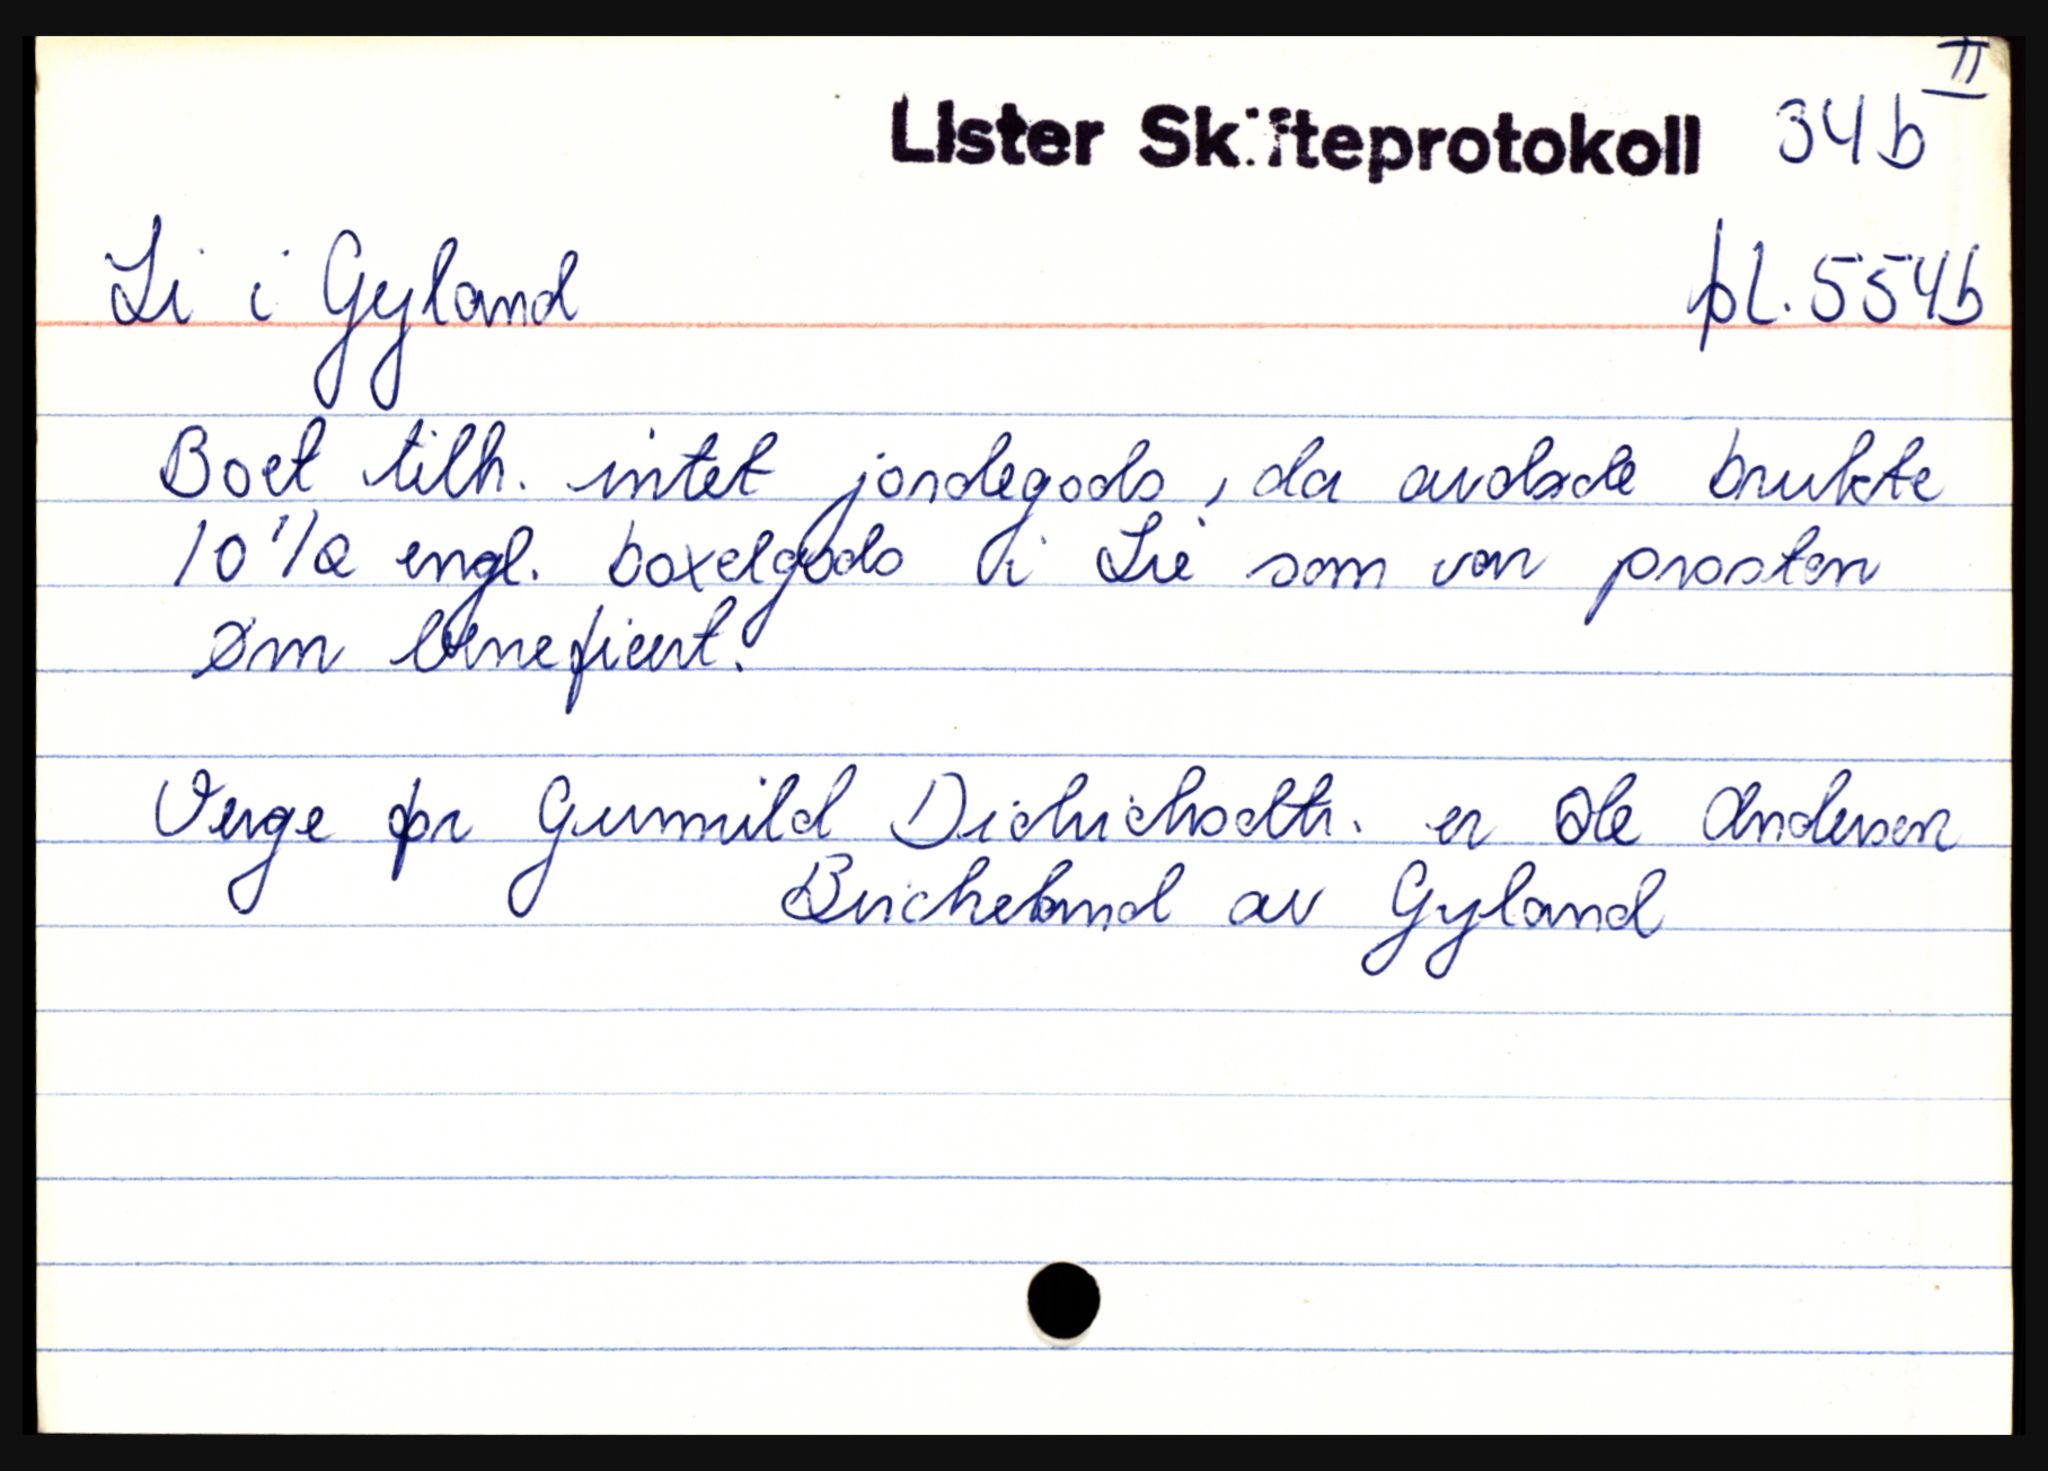 II
Lister Skifteprotokoll 34b
Li i Gyland pl. 554b
Boet tilh. intet jordegods, da avdøde brukte
10 1/2 engl. boxelgods i Lie som var prosten
Øm beneficert.
Verge for Gunnild Didrichsdtr. er Ole Andersen
Bircheland av Gyland